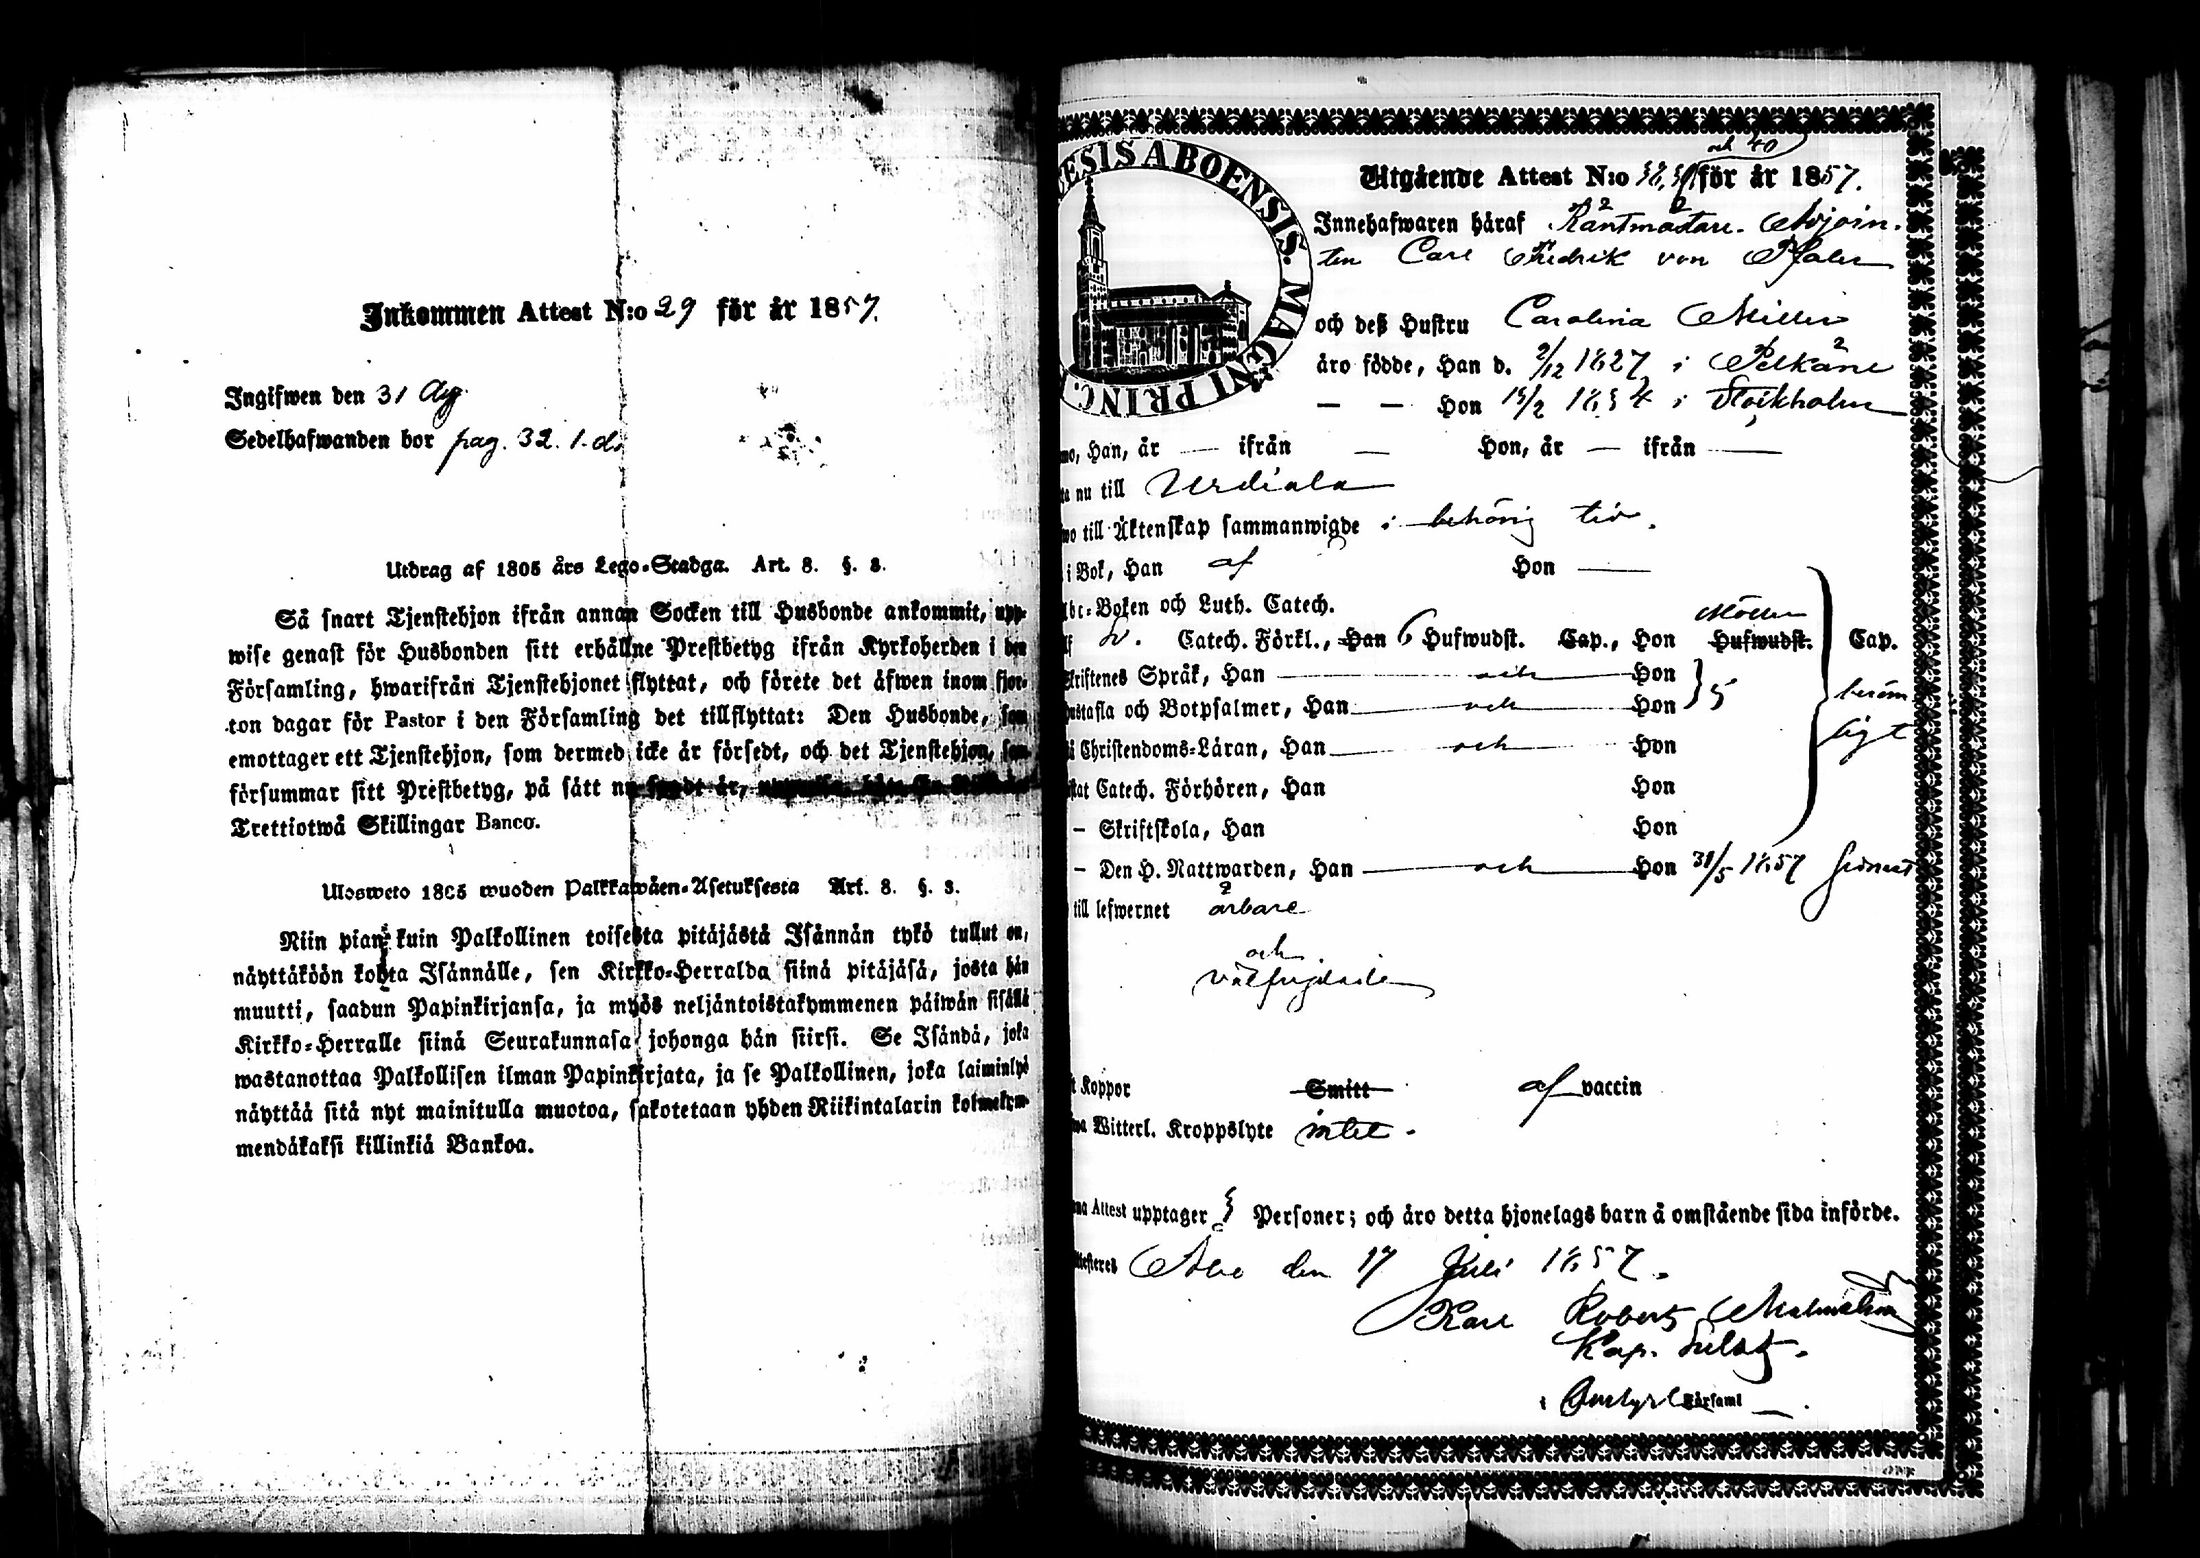 Inkommen Attest N:o 29 för år 1857.
Ingifwen den 31 Aug
Sedelhafwanden bor pag. 32. 1. d.
Utdrag af 1805 års Lego-Stadga. Art. 8. §. 8.
Så snart Tjenstehjon ifrån annan Socken till Husbonde ankommit, upp-
wise genast för Husbonden sitt erhållne Prestbetyg ifrån Kyrkoherden i den
Församling, hwarifrån Tjenstehjonet flyttat, och förete det äfwen inom fjor-
ton dagar för Pastor i den Församling det tillflyttat: Den Husbonde, som
emottager ett Tjenstehjon, som dermed icke är försedt, och det Tjenstehjon, som
försummar sitt Prestbetyg, på sätt nu sagdt är,
Trettiotwå Skillingar Banco.
Ulosweto 1805 wuoden Palkkawäen-Asetuksesta Art. 8. §. 8.
Niin pian kuin Palkollinen toisesta pitäjästä Isännän tykö tullut on,
näyttäköön kohta Isännälle, sen Kirkko-Herralda siinä pitäjäsä, josta hän
muutti, saadun Papinkirjansa, ja myös neljäntoistakymmenen päiwän sisällä
Kirkko-Herralle siinä Seurakunnasa johonga hän siirsi. Se Isändä, joka
wastanottaa Palkollisen ilman Papinkirjata, ja se Palkollinen, joka laiminlyö
näyttää sitä nyt mainitulla muotoa, sakotetaan yhden Riikintalarin kolmekym-
mendäkaksi killinkiä Bankoa.
ESIS ABOENSIS. MAGNI PRINC.
och 40
Utgående Attest N:o för år 1857.
Innehafwaren häraf Räntmästare-Adjoin-
ten Carl Fredrik von Pfaler
och deß Hustru Carolina Miller
äro födde, Han d. 2/12 1827 i Pelkäne
— — Hon 15/2 1834 i Stockholm
mo, Han, år — ifrån — Hon, år — ifrån —
ta nu till Urdiala
wo till Äktenskap sammanwigde i behörig tid.
i Bok, Han af Hon —
Abc-Boken och Luth. Catech.
Sv. Catech. Förkl., Han 6 Hufwudst. Cap., Hon Hufwudst. Cap.
Skriftenes Språk, Han — och — Hon 5
Hustafla och Botpsalmer, Han — och — Hon
beröm
ligt
i Christendoms-Läran, Han — och — Hon
stat Catech. Förhören, Han Hon
– Skriftskola, Han Hon
– Den H. Nattwarden, Han — och — Hon 31/5 1857 senast
till lefwernet ärbare
och
välfrejdade
t Koppor Smitt af vaccin
wa Witterl. Kroppslyte intet.
na Attest upptager 3 Personer; och äro detta hjonelags barn å omstående sida införde.
ttesteres Åbo den 17 Juli 1857.
Karl Robert Malmström
Kap.
i Församl